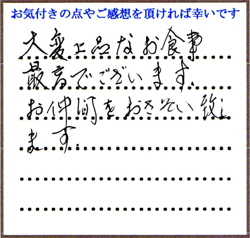 お気付きの点やご感想を頂ければ幸いです
大変上品なお食事
最高でございます。
お仲間をおさそい致し
ます。